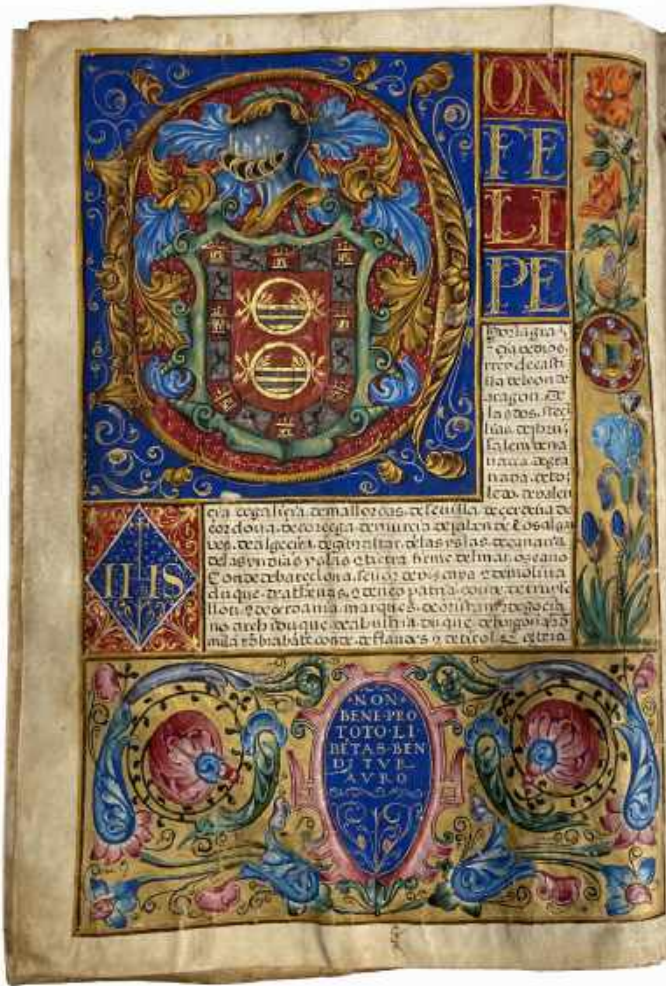 D
ON
FE
LI
PE
Por la gra
çia de dios
rrey de casti
lla de leon de
aragon. De
las dos. seçi
lias. de jhru
salem de na
uarra. de gra
nada. de to
ledo. de valen
çia de galizia. de mallorcas. de seuilla. de cerdeña de
cordoua. de corcega. de murcia. de jahen de los algar
ues. de algezira. de gibraltar. de las yslas. de canaria.
de las yndias yslas e tierra firme del mar oçeano
Conde de barcelona. señor de vizcaya e de molina
duque. de athenas. e de neo patria. conde. de rruyse
llon. e de cerdania. marques. de oristan e de goçia
no. archiduque de abustria. duque. de borgoña e
conde. de flandes e de tirol. etc.
IHS
·NON·
BENE·PRO
TOTO·LI
BETAS·BEN
DITVR·
AVRO·